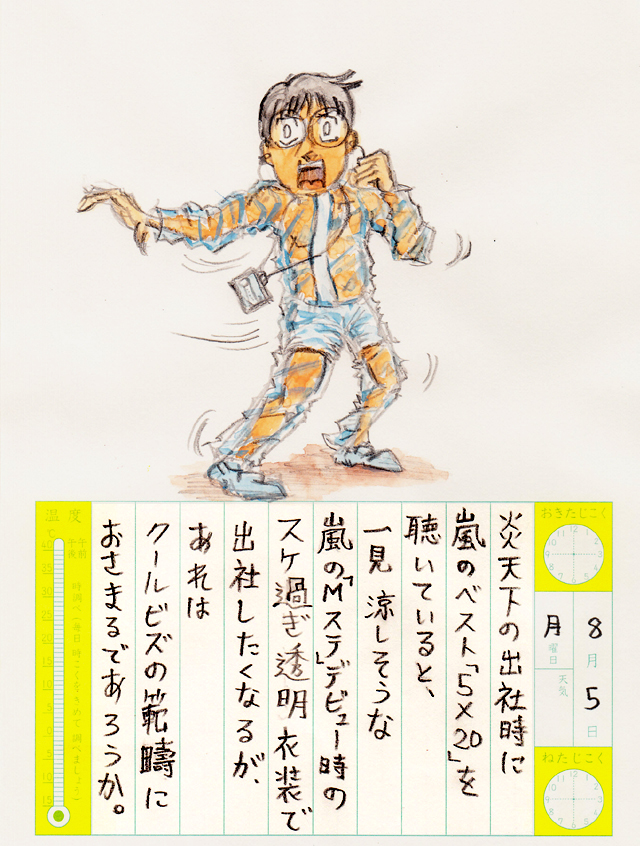 おきたじこく
8月5日
月曜日
天気
ねたじこく
炎天下の出社時に
嵐のベスト「5×20」を
聴いていると、
一見 涼しそうな
嵐の「Mステ」デビュー時の
スケ過ぎ透明衣装で
出社したくなるが、
あれは
クールビズの範疇に
おさまるであろうか。
温度
℃
午前
午後
時調べ(毎日 時こくをきめて 調べましょう)